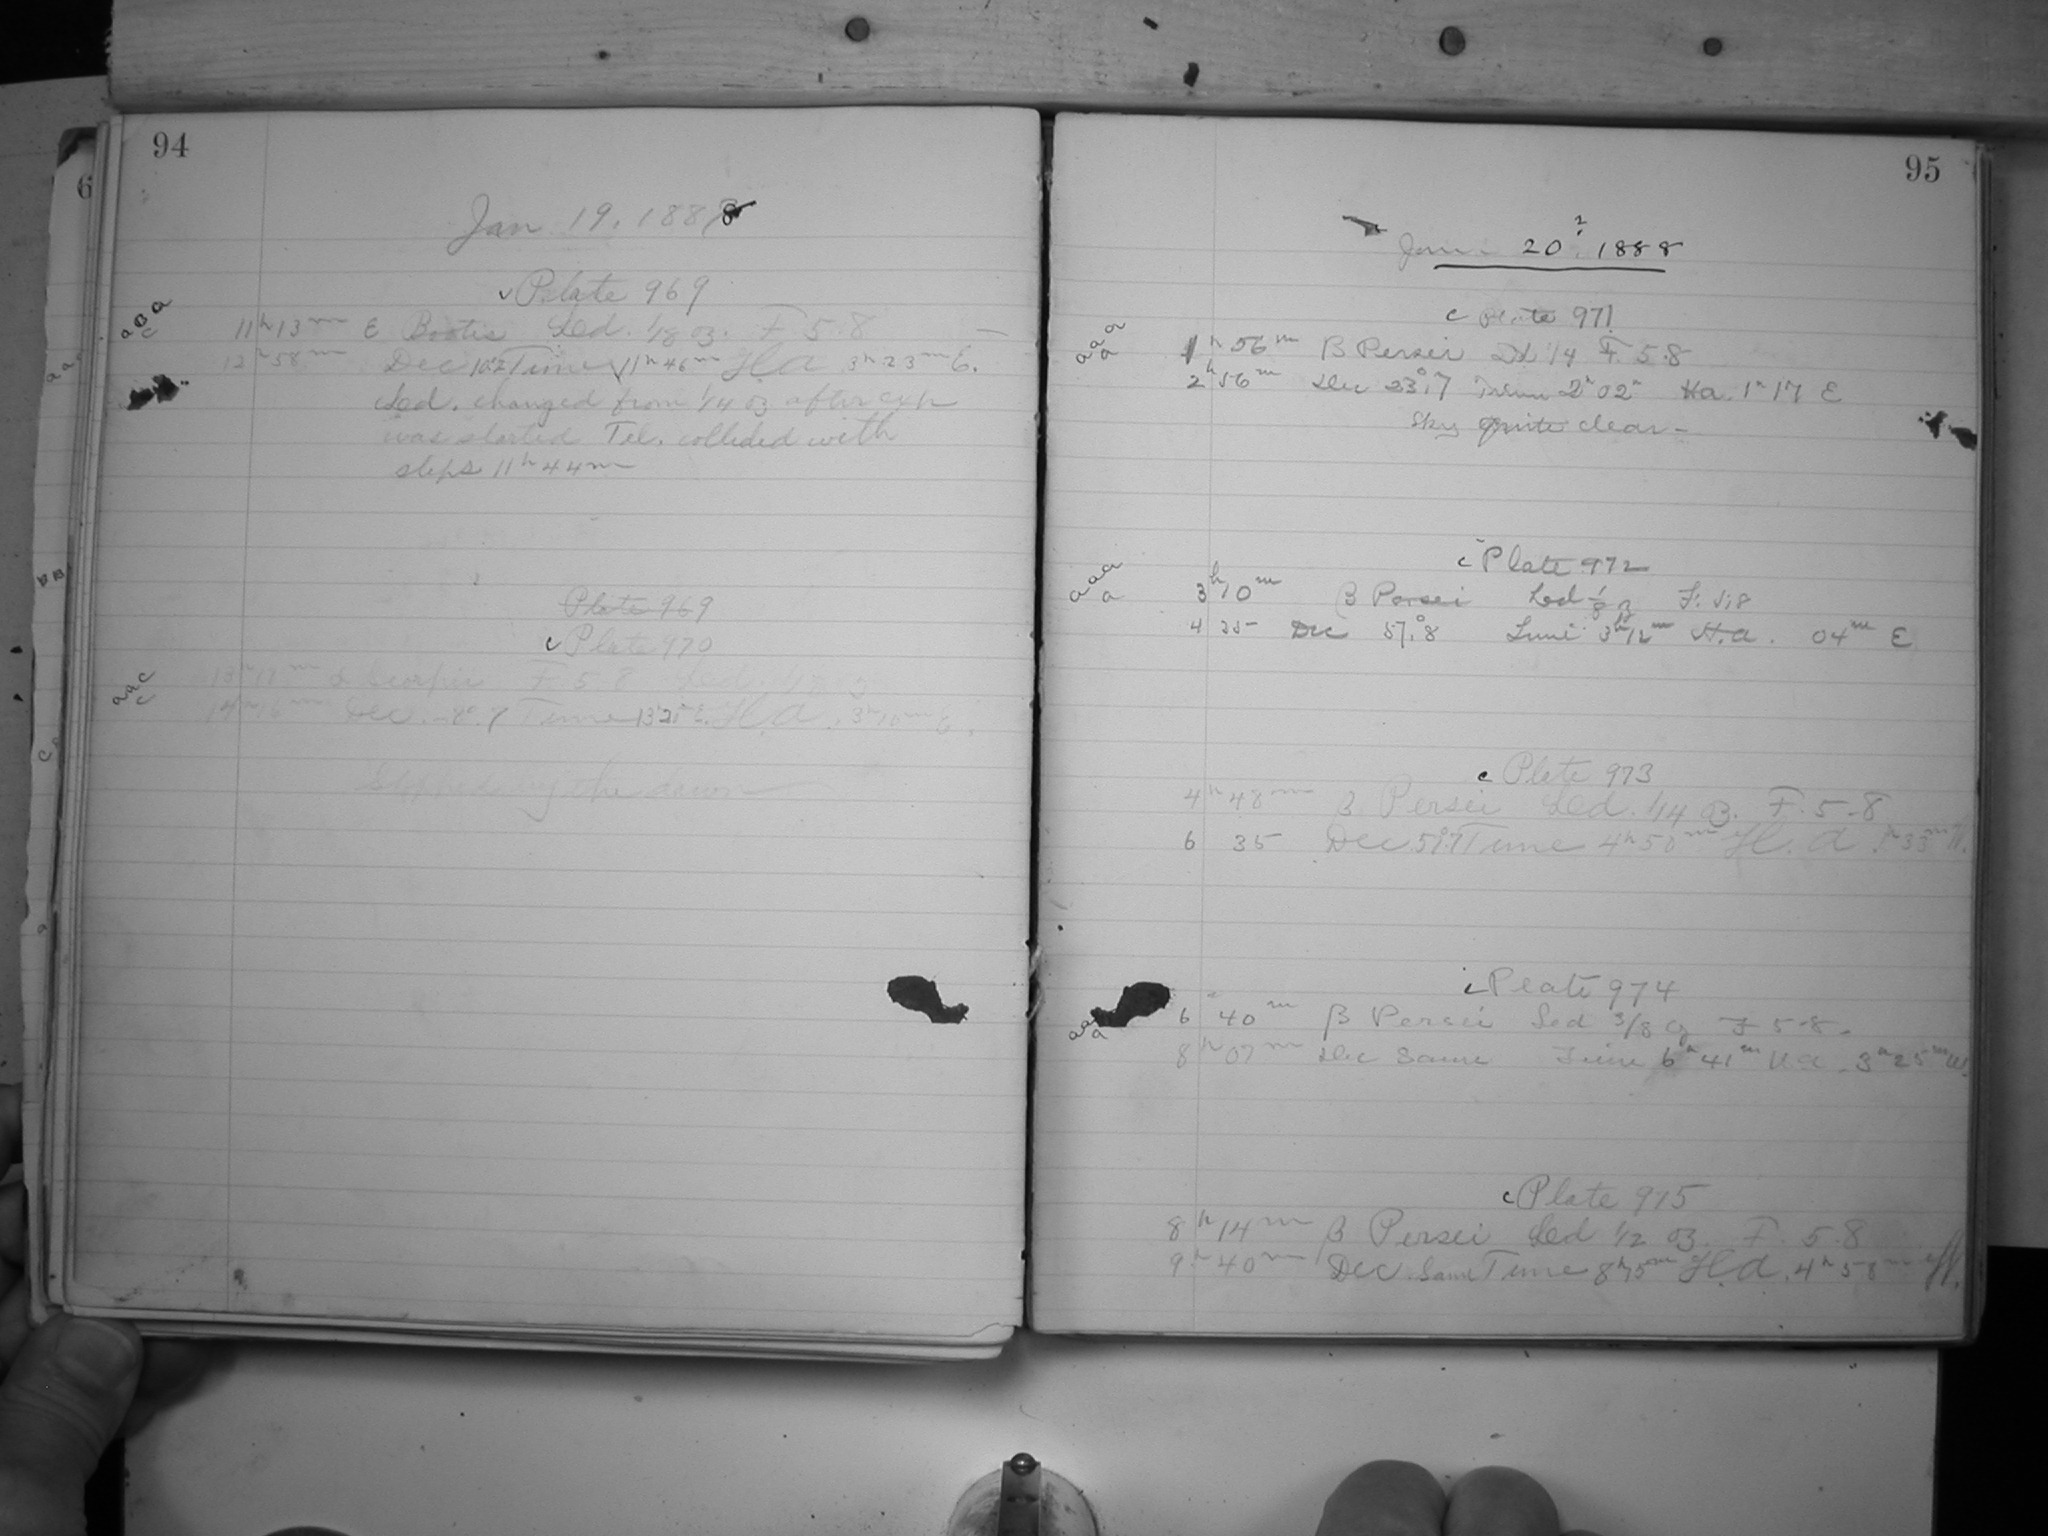 94
Jan 19, 1888
Plate 969
11h 13m ε Bootis Led. 1/8 oz. F 5.8
12h 58m Dec Time 11h 46m H.a 3h 23m E.
Led. changed from 1/4 oz after exp
was started Tel. collided with
steps 11h 44m
Plate 969
c Plate 970
F. 5.8 Led.
Dec. Time H.a.
dawn
95
Jan. 20, 1888
c Plate 971
1h 56m β Persei 1/4 F. 5.8
2h 56m Dec Time 2h 02m Ha. 1h 17 E
Sky quite clear-
c Plate 972
3h 10m β Persei Led 1/8 oz F. 5.8
4 25 Dec 57°.8 Time 3h 12m H.a. 04m E
c Plate 973
4h 48m β Persei Led. 1/4 oz. F. 5.8
6 35 Dec Time 4h 50m H.a 1h 33m W.
c Plate 974
6 40m β Persei Led 3/8 oz F 5.8.
8h 07m Dec Same Time 6h 41m H.a. 3h 25m W.
c Plate 975
8h 14m β Persei Led 1/2 oz. F. 5.8
9h 40m Dec. Same Time 8h 15m H.a. 4h 58m W.